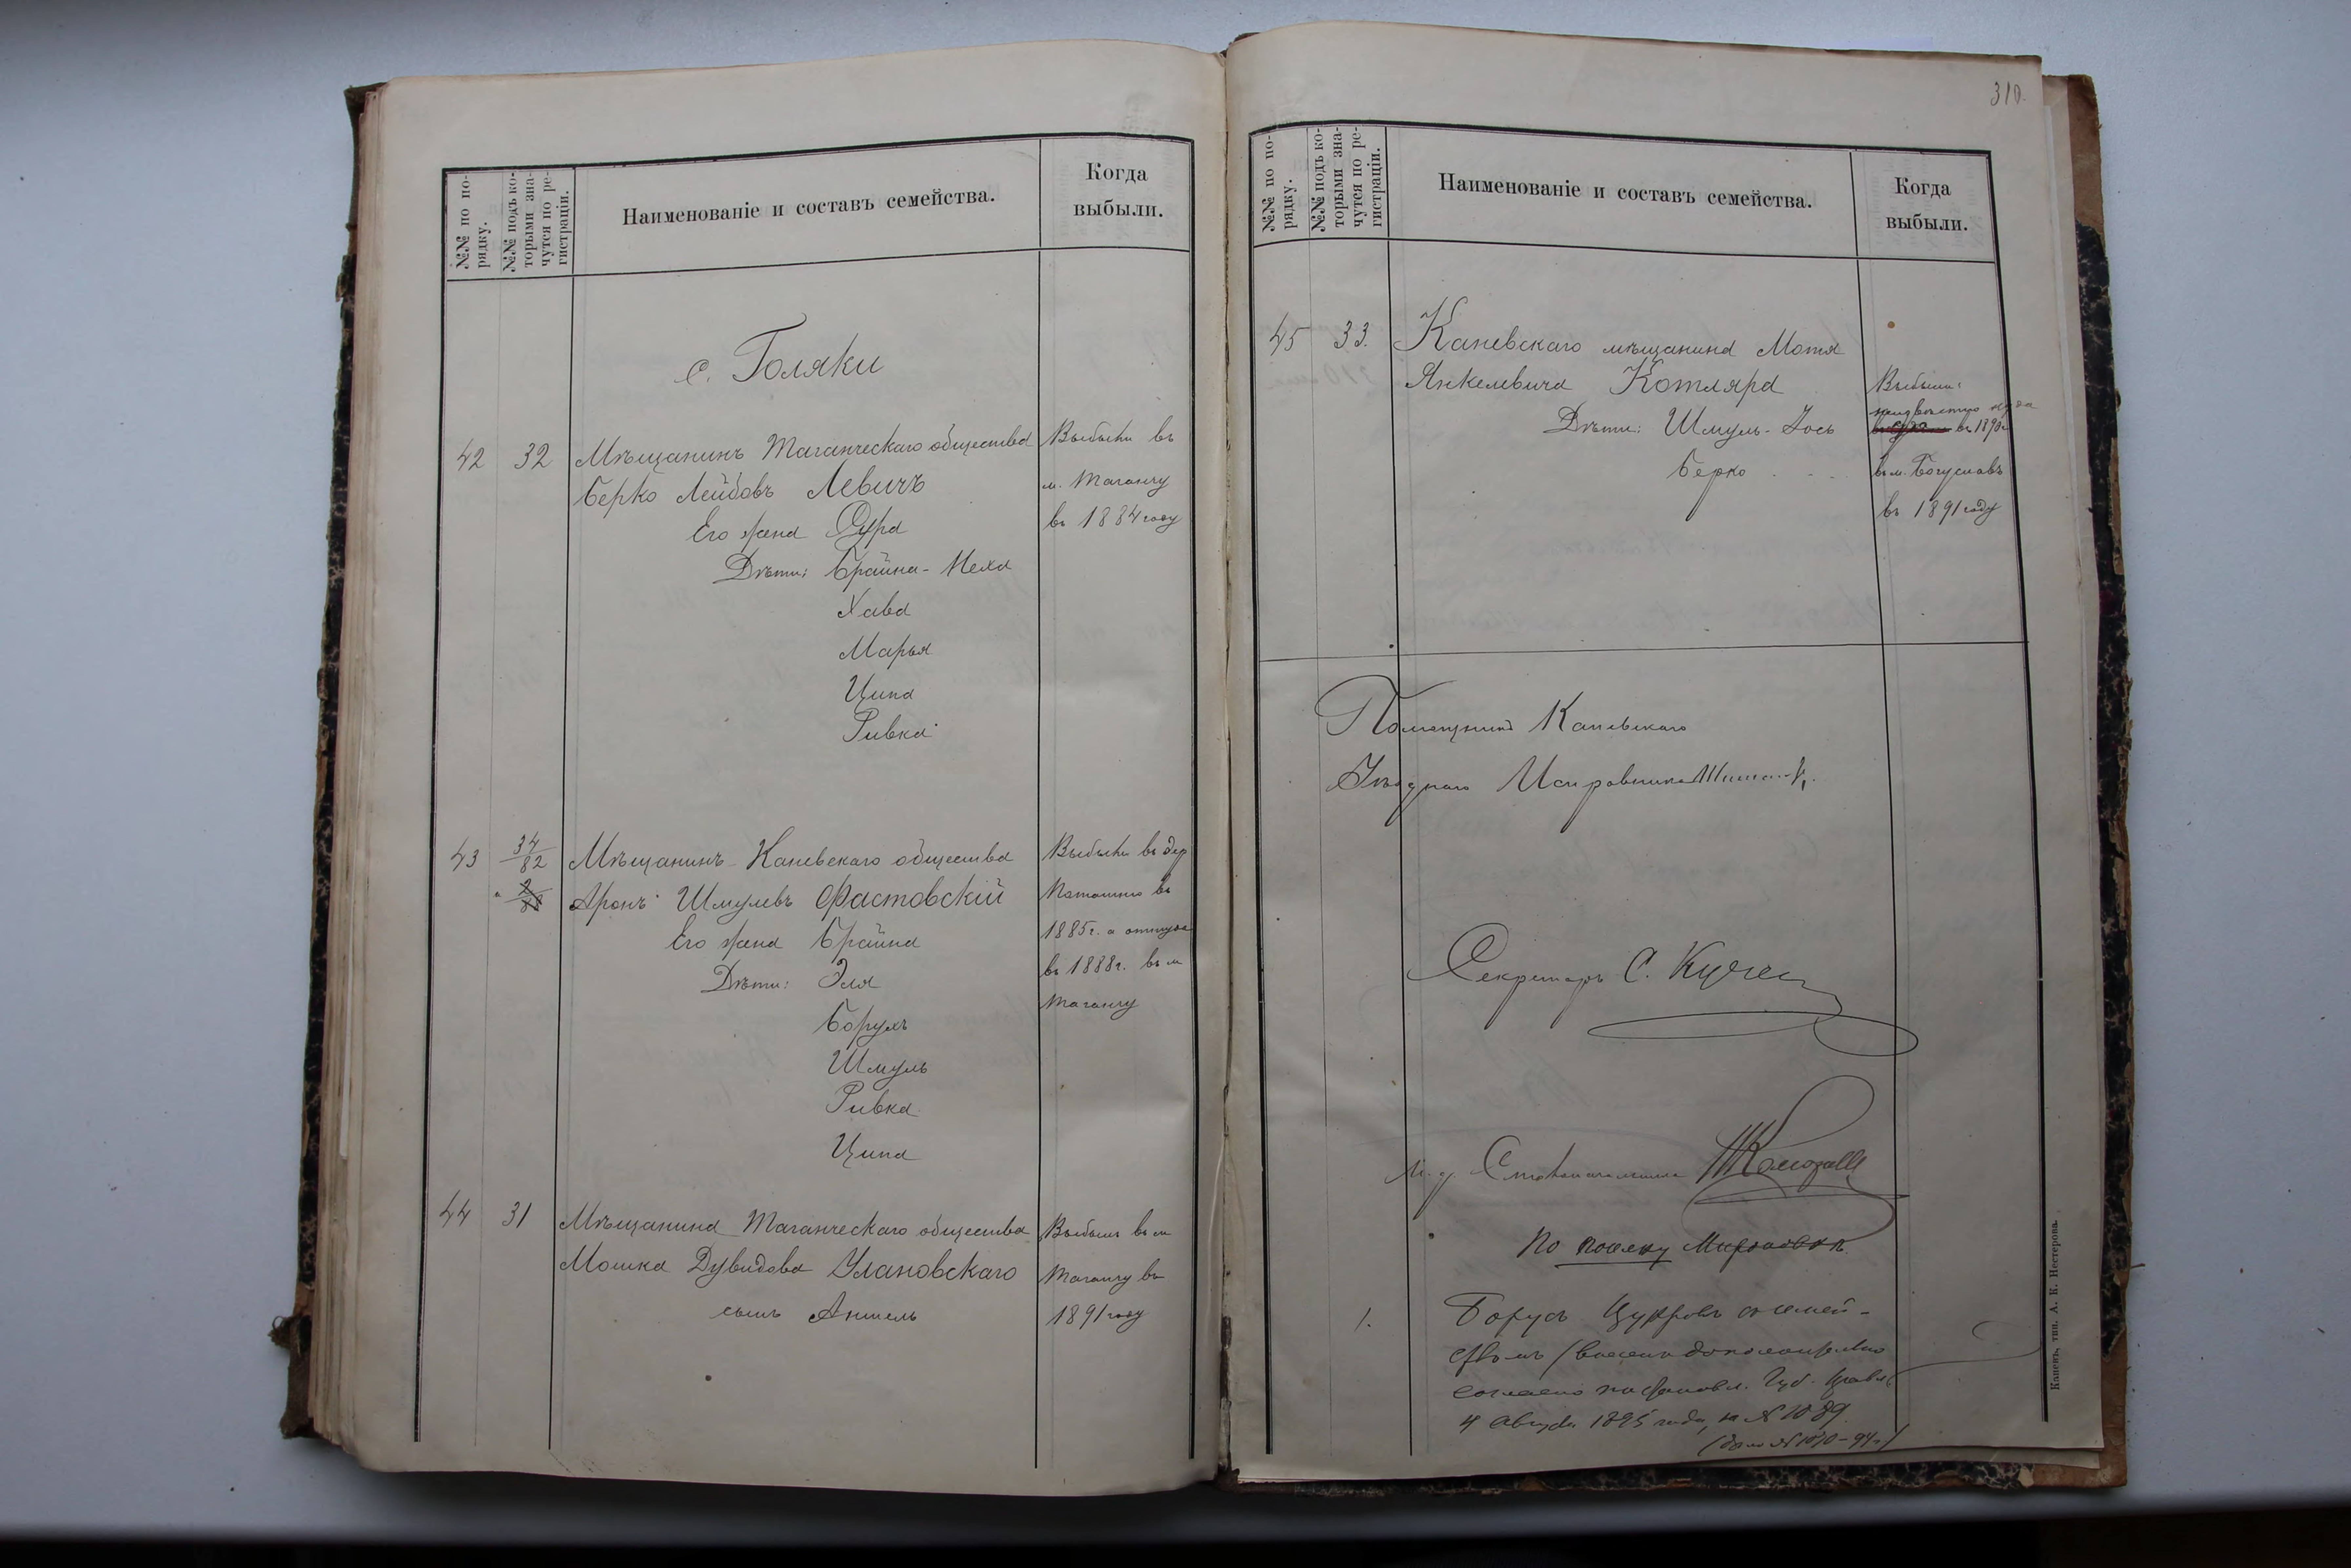 №№ по по-
рядку.
№№ подъ ко-
торыми зна-
чутся по ре-
гистраціи.
Наименованіе и составъ семейства.
Когда
выбыли.
с. Голяки
42 32 Мѣщанинъ Таганческаго общества
Берко Лейбовъ Левичъ
Его жена Сура
Дѣти: Брайна-Неха
Хава
Марья
Ципа
Ривка
Выбыли въ
м. Таганчу
въ 1884 году
43 34/82 Мѣщанинъ Каневскаго общества
Аронъ Шмулевъ Фастовскій
Его жена Брайна
Дѣти: Эля
Борухъ
Шмуль
Ривка
Ципа
Выбыли въ дер
Поташню въ
1885г. а оттуда
въ 1888г. въ м
Таганчу
44 31 Мѣщанина Таганческаго общества
Мошка Дувидова Улановскаго
сынъ Аншель
Выбылъ въ м
Таганчу въ
1891 году
310.
№№ по по-
рядку.
№№ подъ ко-
торыми зна-
чутся по ре-
гистраціи.
Наименованіе и составъ семейства.
Когда
выбыли.
45 33. Каневскаго мѣщанина Мотя
Янкелевича Котляра
Дѣти: Шмуль-Іось
Берко
Выбыли:
неизвѣстно куда
въ 1890г
въ м. Богуславъ
въ 1891 году
Помощникъ Каневскаго
Уѣзднаго Исправника
Секретарь С.
И. д. Столоначальника
По поселку Мироновка
1. Борухъ Цукровъ съ семей-
ствомъ (внесенъ дополнительно
согласно постановл. Губ. Правл.
4 Августа 1895 года, за № 1089
(дѣло № 1070-94г)
Каневъ, тип. А. К. Нестерова.